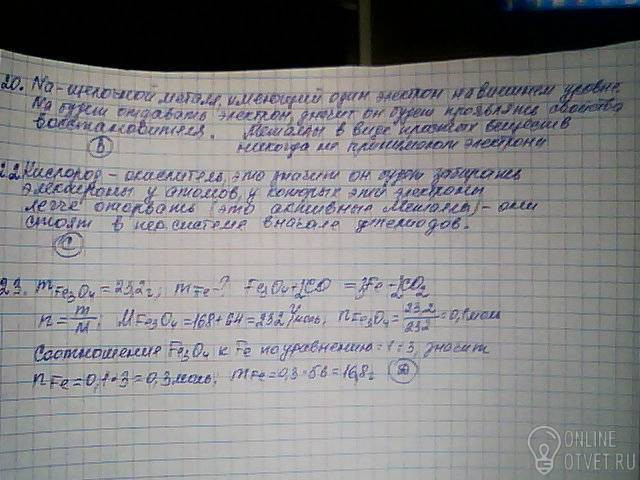 20. Na - щелочной металл, имеющий один электрон на внешнем уровне.
Na будет отдавать электрон, значит он будет проявлять свойства
восстановителя. Металлы в виде простых веществ
никогда не принимают электроны
В
22. Кислород - окислитель, это значит он будет забирать
электроны у атомов, у которых эти электроны
легче оторвать (это активные металлы) - они
стоят в пер. системе в начале периодов.
С
23. mFe3O4 = 23,2г; mFe - ? Fe3O4 + CO = 3Fe + CO2
n = m/M; MFe3O4 = 168 + 64 = 232 г/моль, nFe3O4 = 23,2/232 = 0,1 моль
Соотношения Fe3O4 к Fe по уравнению = 1:3, значит
nFe = 0,1 · 3 = 0,3 моль; mFe = 0,3 · 56 = 16,8г
ONLINE
OTVET.RU